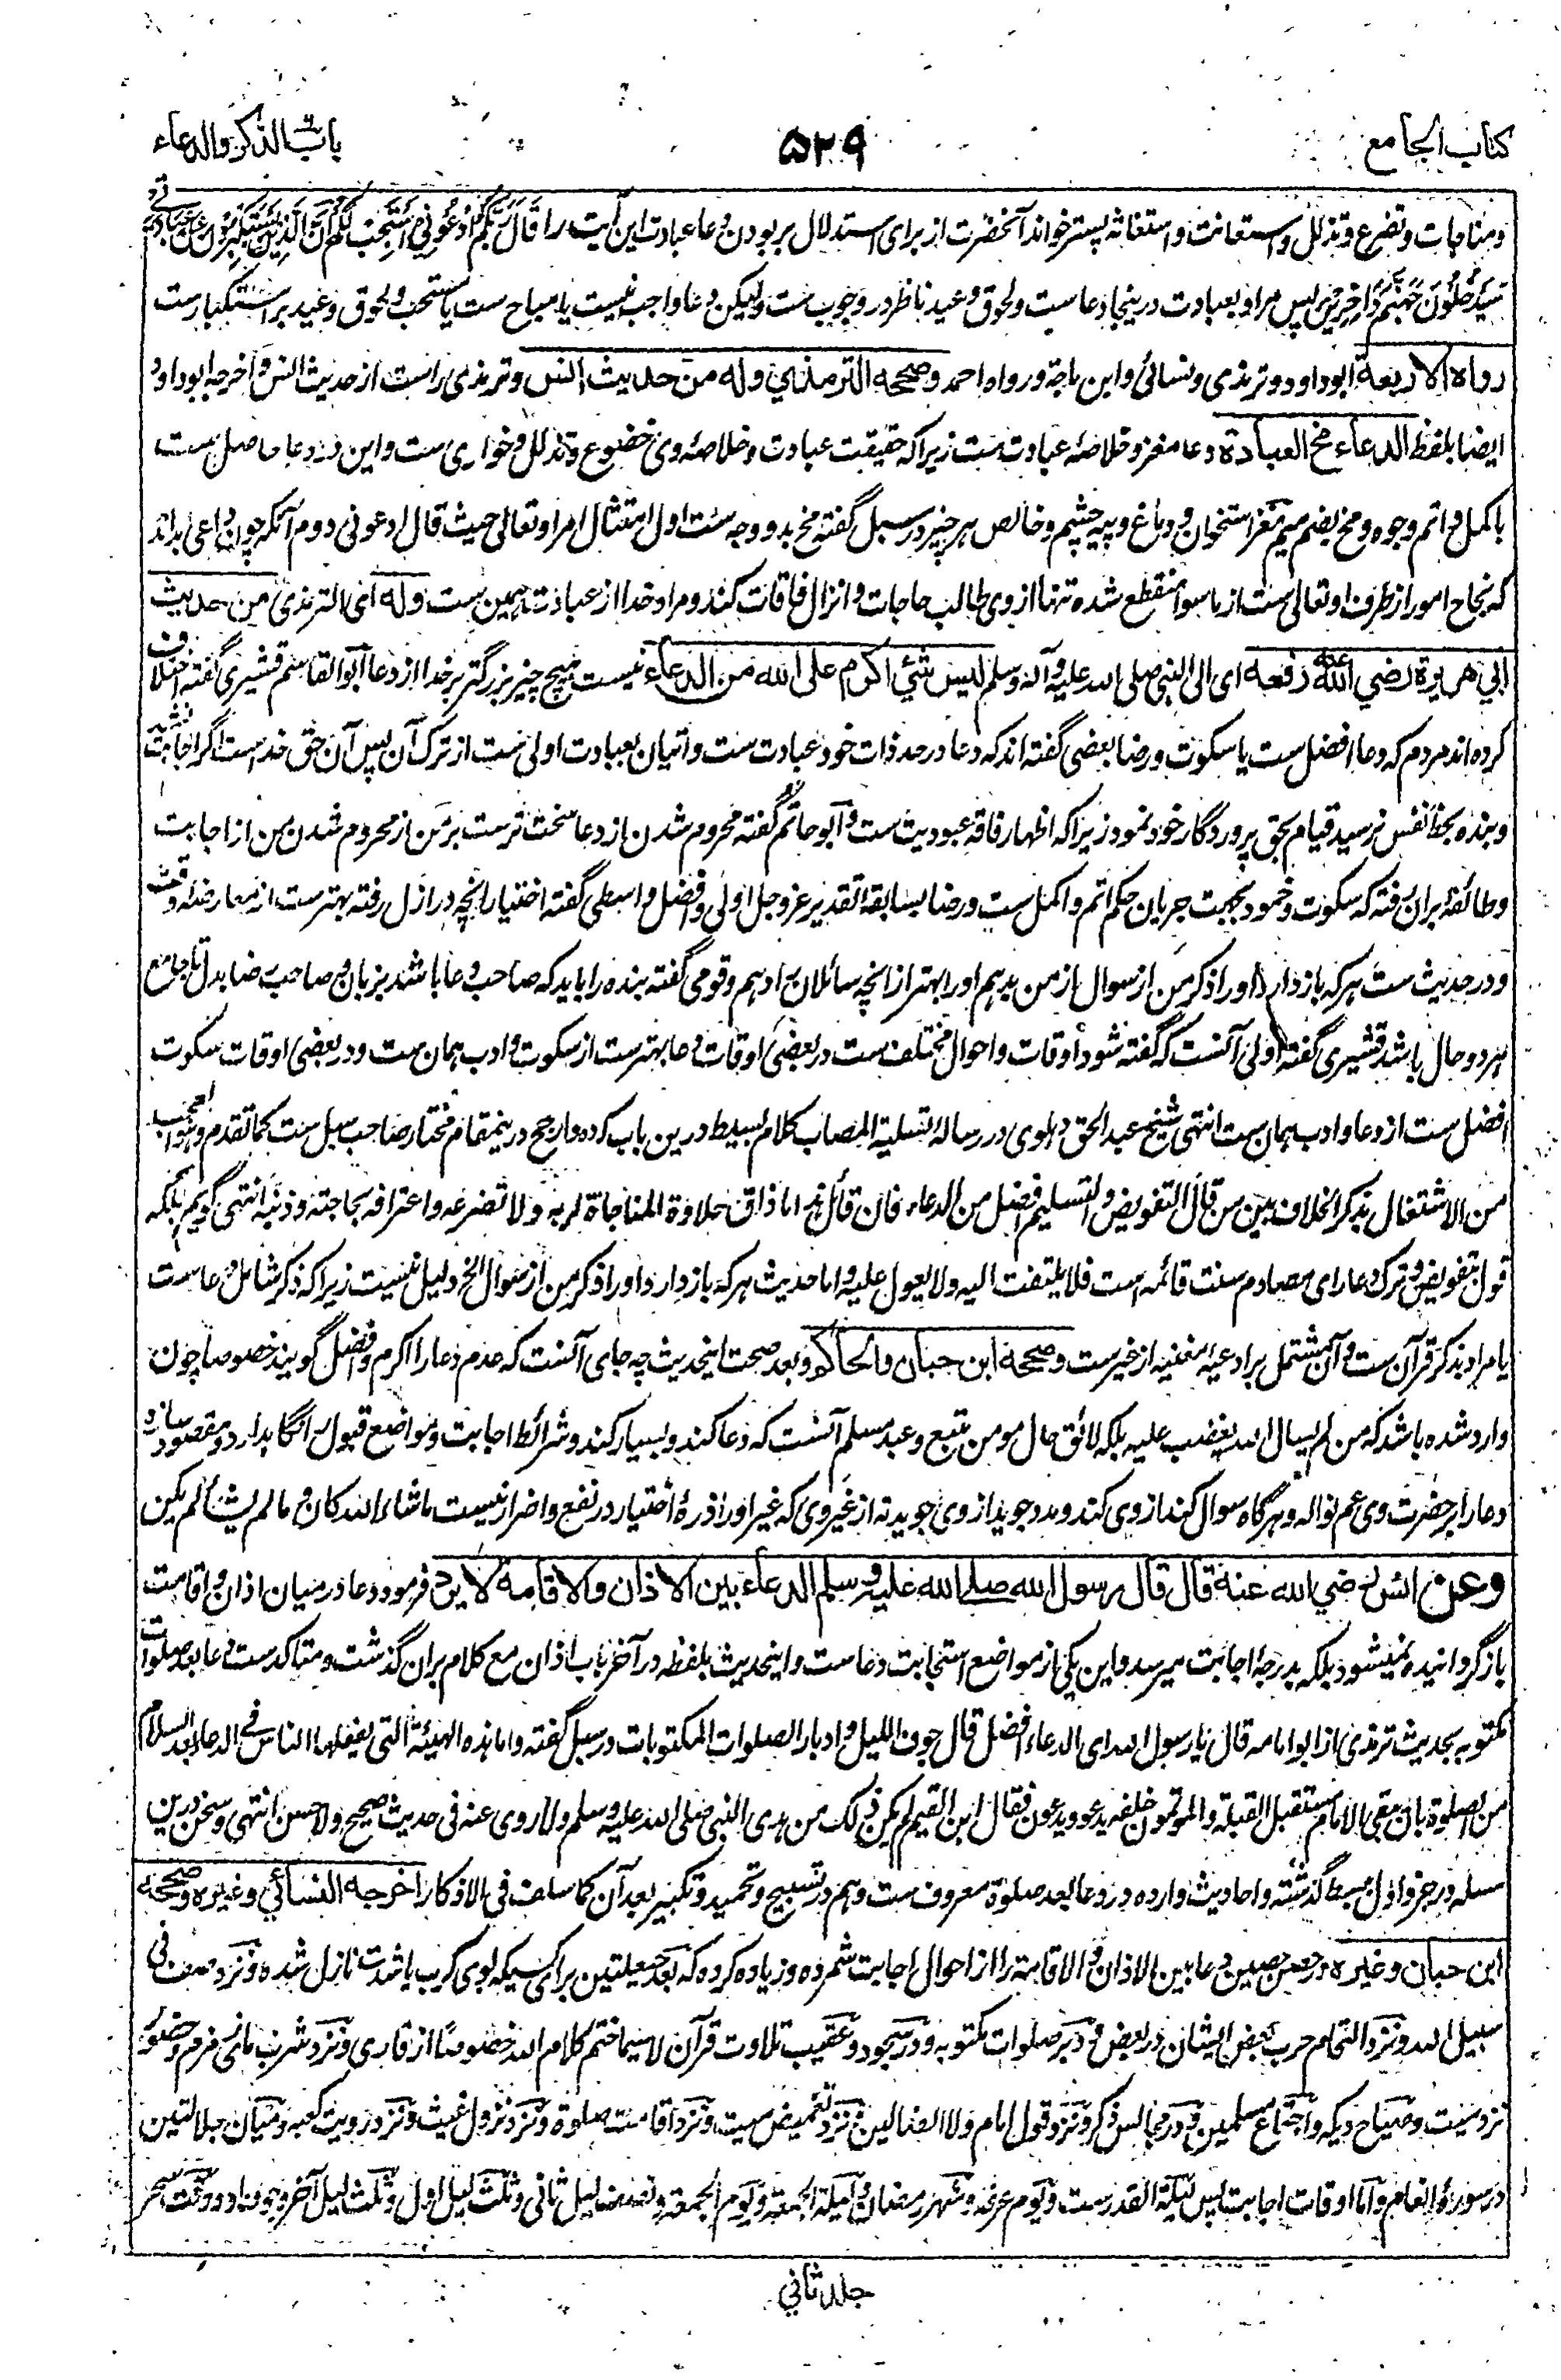 كتاب الجامع
۵۲۹
باب الذكر والدعاء
ومناجات وتضرع وتذلل واستعانت واستغاثه پسترخواند آنحضرت از برای استدلال بر بودن دعا عبادت این آیت را قَالَ رَبُّكُمُ ادْعُوْنِيْ اَسْتَجِبْ لَكُمْ اِنَّ الَّذِيْنَ يَسْتَكْبِرُوْنَ عَنْ عِبَادَتِيْ
سَيَدْخُلُوْنَ جَهَنَّمَ دَاخِرِيْنَ پس مراد بعبادت درینجا دعاست ولحوق وعید ناظر در وجوب ست ولیکن دعا واجب نیست یا مباح ست یا مستحب ولحوق وعید بر استکبارست
رواه الاربعة ابوداود وترمذی ونسائی وابن ماجة ورواه احمد وصححه الترمذي وله من حديث انس وترمذی راست از حدیث انس واخرجه ابوداود
ایضا بلفظ الدعاء مخ العبادة دعا مغز وخلاصۂ عبادت ست زیرا که حقیقت عبادت وخلاصۂ وی خضوع وتذلل وخواری ست واین در دعا حاصل ست
باکمل واتم وجوه ومخ بضم میم مغز استخوان ودماغ وپیه چشم وخالص هر چیز در سبل گفته مخ بدو وجه ست اول امتثال امر او تعالی حیث قال ادعونی دوم آنکه چون داعی بداند
که نجاح امور از طرف او تعالی ست از ماسوا منقطع شده تنها از وی طالب حاجات وانزال فاقات کند ومراد خدا از عبادت همین ست وله ای الترمذی من حديث
ابي هريرة رضي الله عنه رفعه ای الی النبی صلی الله علیه وآله وسلم ليس شيء اكرم على الله من الدعاء نیست هیچ چیز بزرگتر بر خدا از دعا ابوالقاسم قشیری گفته اختلاف
کرده اند مردم که دعا افضل ست یا سکوت ورضا بعضی گفته اند که دعا در حد ذات خود عبادت ست واتیان بعبادت اولی ست از ترک آن پس آن حق خداست اگر اجابت نشد
وبنده بحظ نفس نرسید قیام بحق پروردگار خود نمود زیرا که اظهار فاقه عبودیت ست وابوحاتم گفته محروم شدن از دعا سخت ترست بر من از محروم شدن من از اجابت
وطائفه بران رفته که سکوت وخمود بجهت جریان حکم اتم واکمل ست ورضا بسابقه تقدیر عز وجل اولی وافضل واسطی گفته اختیار انچه در ازل رفته بهترست از معارضه وقت
ودر حدیث ست هرکه باز دارد او را ذکر من از سوال از من بدهم او را بهتر از انچه سائلان را دهم وقومی گفته بنده را باید که صاحب دعا باشد بزبان وصاحب رضا بدل تا جامع
هر دو حال باشد قشیری گفته اولی آنست که گفته شود اوقات واحوال مختلف ست در بعضی اوقات دعا بهترست از سکوت وادب همان ست ودر بعضی اوقات سکوت
افضل ست از دعا وادب همان ست انتهی شیخ عبد الحق دهلوی در رساله تسلیة المصاب کلام بسیط درین باب کرده وارجح درینمقام مختار صاحب سبل ست کما تقدم وهو اعجب
من الاشتغال بذکر الخلاف بین من قال التفویض والتسلیم افضل من الدعاء فان قائل هذا ما ذاق حلاوة المناجاة لربه ولا تضرعه واعترافه بحاجته وذنبه انتهی گویم بلکه
قول بتفویض وترک دعا رای مصادم سنت قائمه است فلا یلتفت الیه ولا یعول علیه واما حدیث هرکه باز دارد او را ذکر من از سوال الخ دلیل نیست زیرا که ذکر شامل دعاست
یا مراد بذکر قرآن ست وآن مشتمل بر ادعیه مغنیه از غیرست وصححه ابن حبان والحاكم وبعد صحت اینحدیث چه جای آنست که عدم دعا را اکرم وافضل گویند خصوصا چون
وارد شده باشد که من لم یسال الله یغضب علیه بلکه لائق حال مومن متبع وعبد مسلم آنست که دعا کند وبسیار کند وشرائط اجابت ومواضع قبول را نگاهدارد ومقصود سازد
دعا را بر حضرت وی عم نواله وهرگاه سوال کند از وی کند ومدد جوید از وی جوید نه از غیر وی که غیر او را ذرۀ اختیار در نفع واضرار نیست ما شاء الله کان وما لم یشأ لم یکن
وعن انس رضي الله عنه قال قال رسول الله صلى الله عليه وسلم الدعاء بين الاذان والاقامة لا يرد فرمود دعا در میان اذان واقامت
بازگردانیده نمیشود بلکه بدرجۀ اجابت میرسد واین یکی از مواضع استجابت دعاست واینحدیث بلفظه در آخر باب اذان مع کلام بران گذشت ومتاکدست دعا بعد صلوات
مکتوبه بحدیث ترمذی از ابو امامه قال یا رسول الله ای الدعاء افضل قال جوف اللیل وادبار الصلوات المکتوبات در سبل گفته واما هذه الهیئة التی یفعلها الناس فی الدعاء بعد السلام
من الصلوة بان یبقی الامام مستقبل القبلة والموتمون خلفه یدعو ویدعون فقال ابن القیم لم یکن ذلک من هدی النبی صلی الله علیه وسلم ولا روی عنه فی حدیث صحیح ولا حسن انتهی وسخن درین
مسله در جزو اول ببسط گذشته واحادیث وارده در دعا بعد صلوة معروف ست وهم در تسبیح وتحمید وتکبیر بعد آن کما سلف فی الاذکار اخرجه النسائي وغيره وصححه
ابن حبان وغيره در حصن حصین دعا بین الاذان والاقامة را از احوال اجابت شمرده وزیاده کرده که بعد حیعلتین برای کسیکه بوی کرب یا شدت نازل شده ونزد صف فی
سبیل الله ونزد التحام حرب بعض ایشان در بعض ودبر صلوات مکتوبه ودر سجود وعقیب تلاوت قرآن لاسیما ختم کلام الله خصوصا از قاری ونزد شرب مای زمزم وحضور
نزد میت وصیاح دیکه واجتماع مسلمین ودر مجالس ذکر ونزد قول امام ولا الضالین ونزد تغمیض میت ونزد اقامت صلوة ونزد نزول غیث ونزد رویت کعبه ومیان جلالتین
در سورۀ انعام واما اوقات اجابت پس لیلة القدرست ویوم عرفه وشهر رمضان ولیلة الجمعة ویوم الجمعة ونصف لیل ثانی وثلث لیل اول وثلث لیل آخر وجوف او ووقت سحر
جلد ثاني